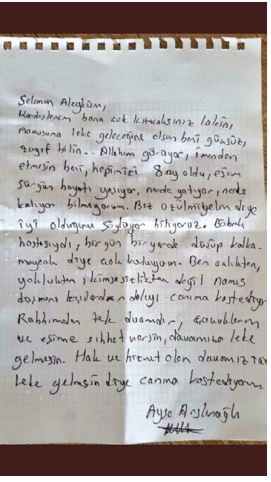 Selamun Aleyküm,
Kardeşlerim bana çok kızacaksınız lakin,
Namusuma leke geleceğine olsun beni güçsüz,
zayıf bilin.. Allahım görüyor, imandan
etmesin beni, hepimizi 8 ay oldu, eşim
sürgün hayatı yaşıyor, nerde yatıyor, nerde
kalıyor bilmiyorum. Biz üzülmiyelim diye
iyi olduğunu söylüyor biliyoruz.
hastasıydı, bir gün bir yerde düşüp kalka-
mayacak diye çok korkuyorum. Ben açlıktan,
yokluktan kimsesizlikten değil namus
düşmanı kişilerden dolayı canıma kastediyorum
Rabbimden tek duamdır, çocuklarım
ve eşime sıhhat versin, davamıza leke
gelmesin. Hak ve olan davamıza
leke gelmesin diye canıma kastediyorum
Ayşe